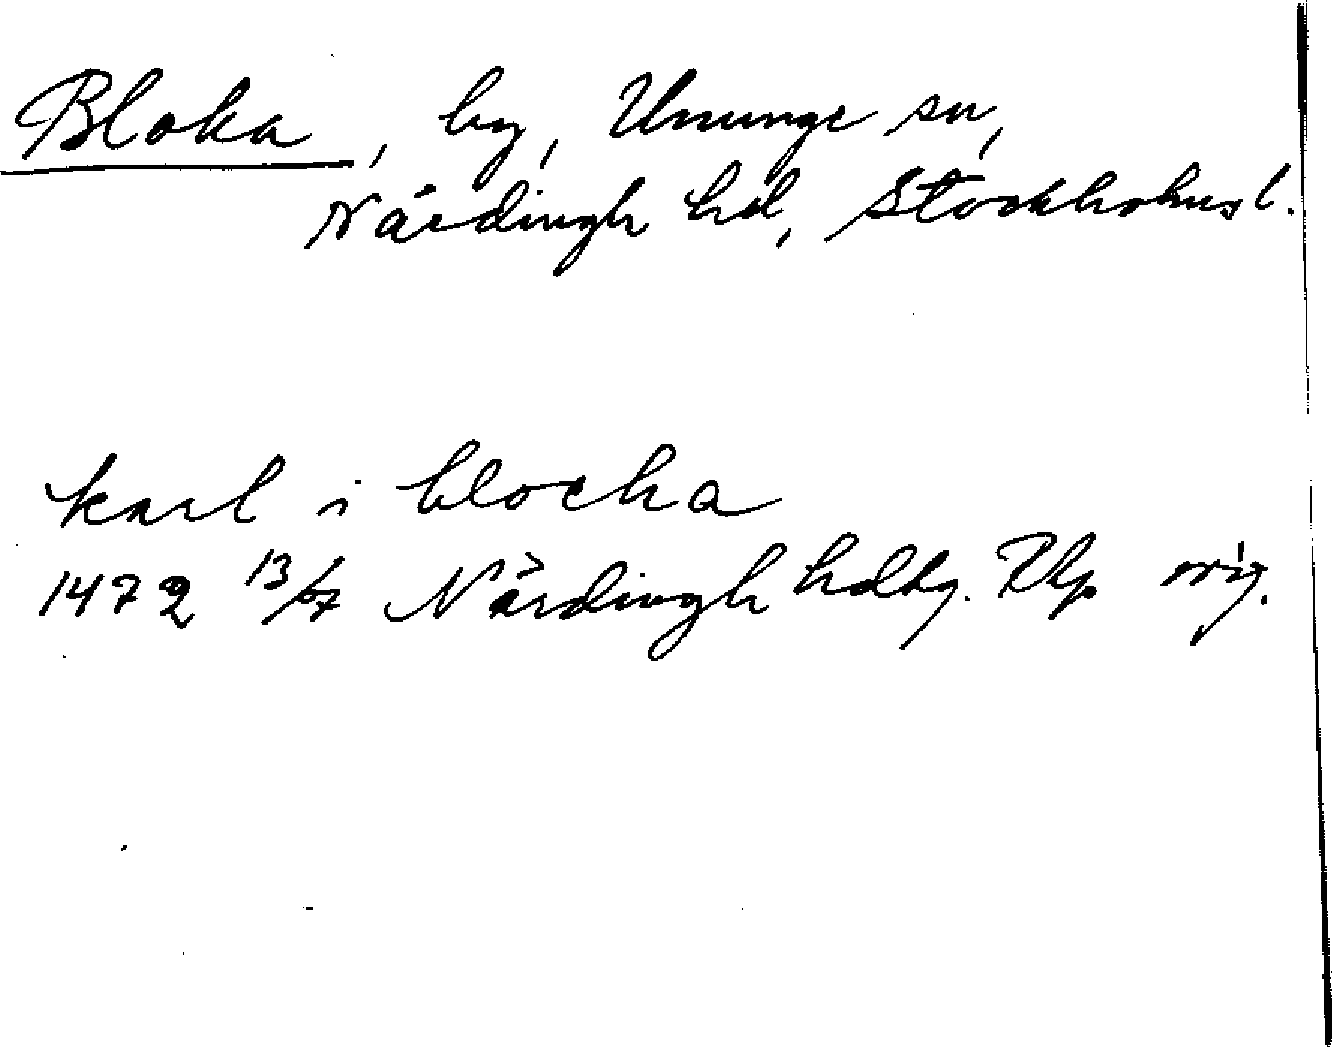 Bloka, by, Ununge sn,
Närdingh hd, Stockholms l.
karl i blocka
1472 13/7 Närdingh hdtg. Rlp orig.